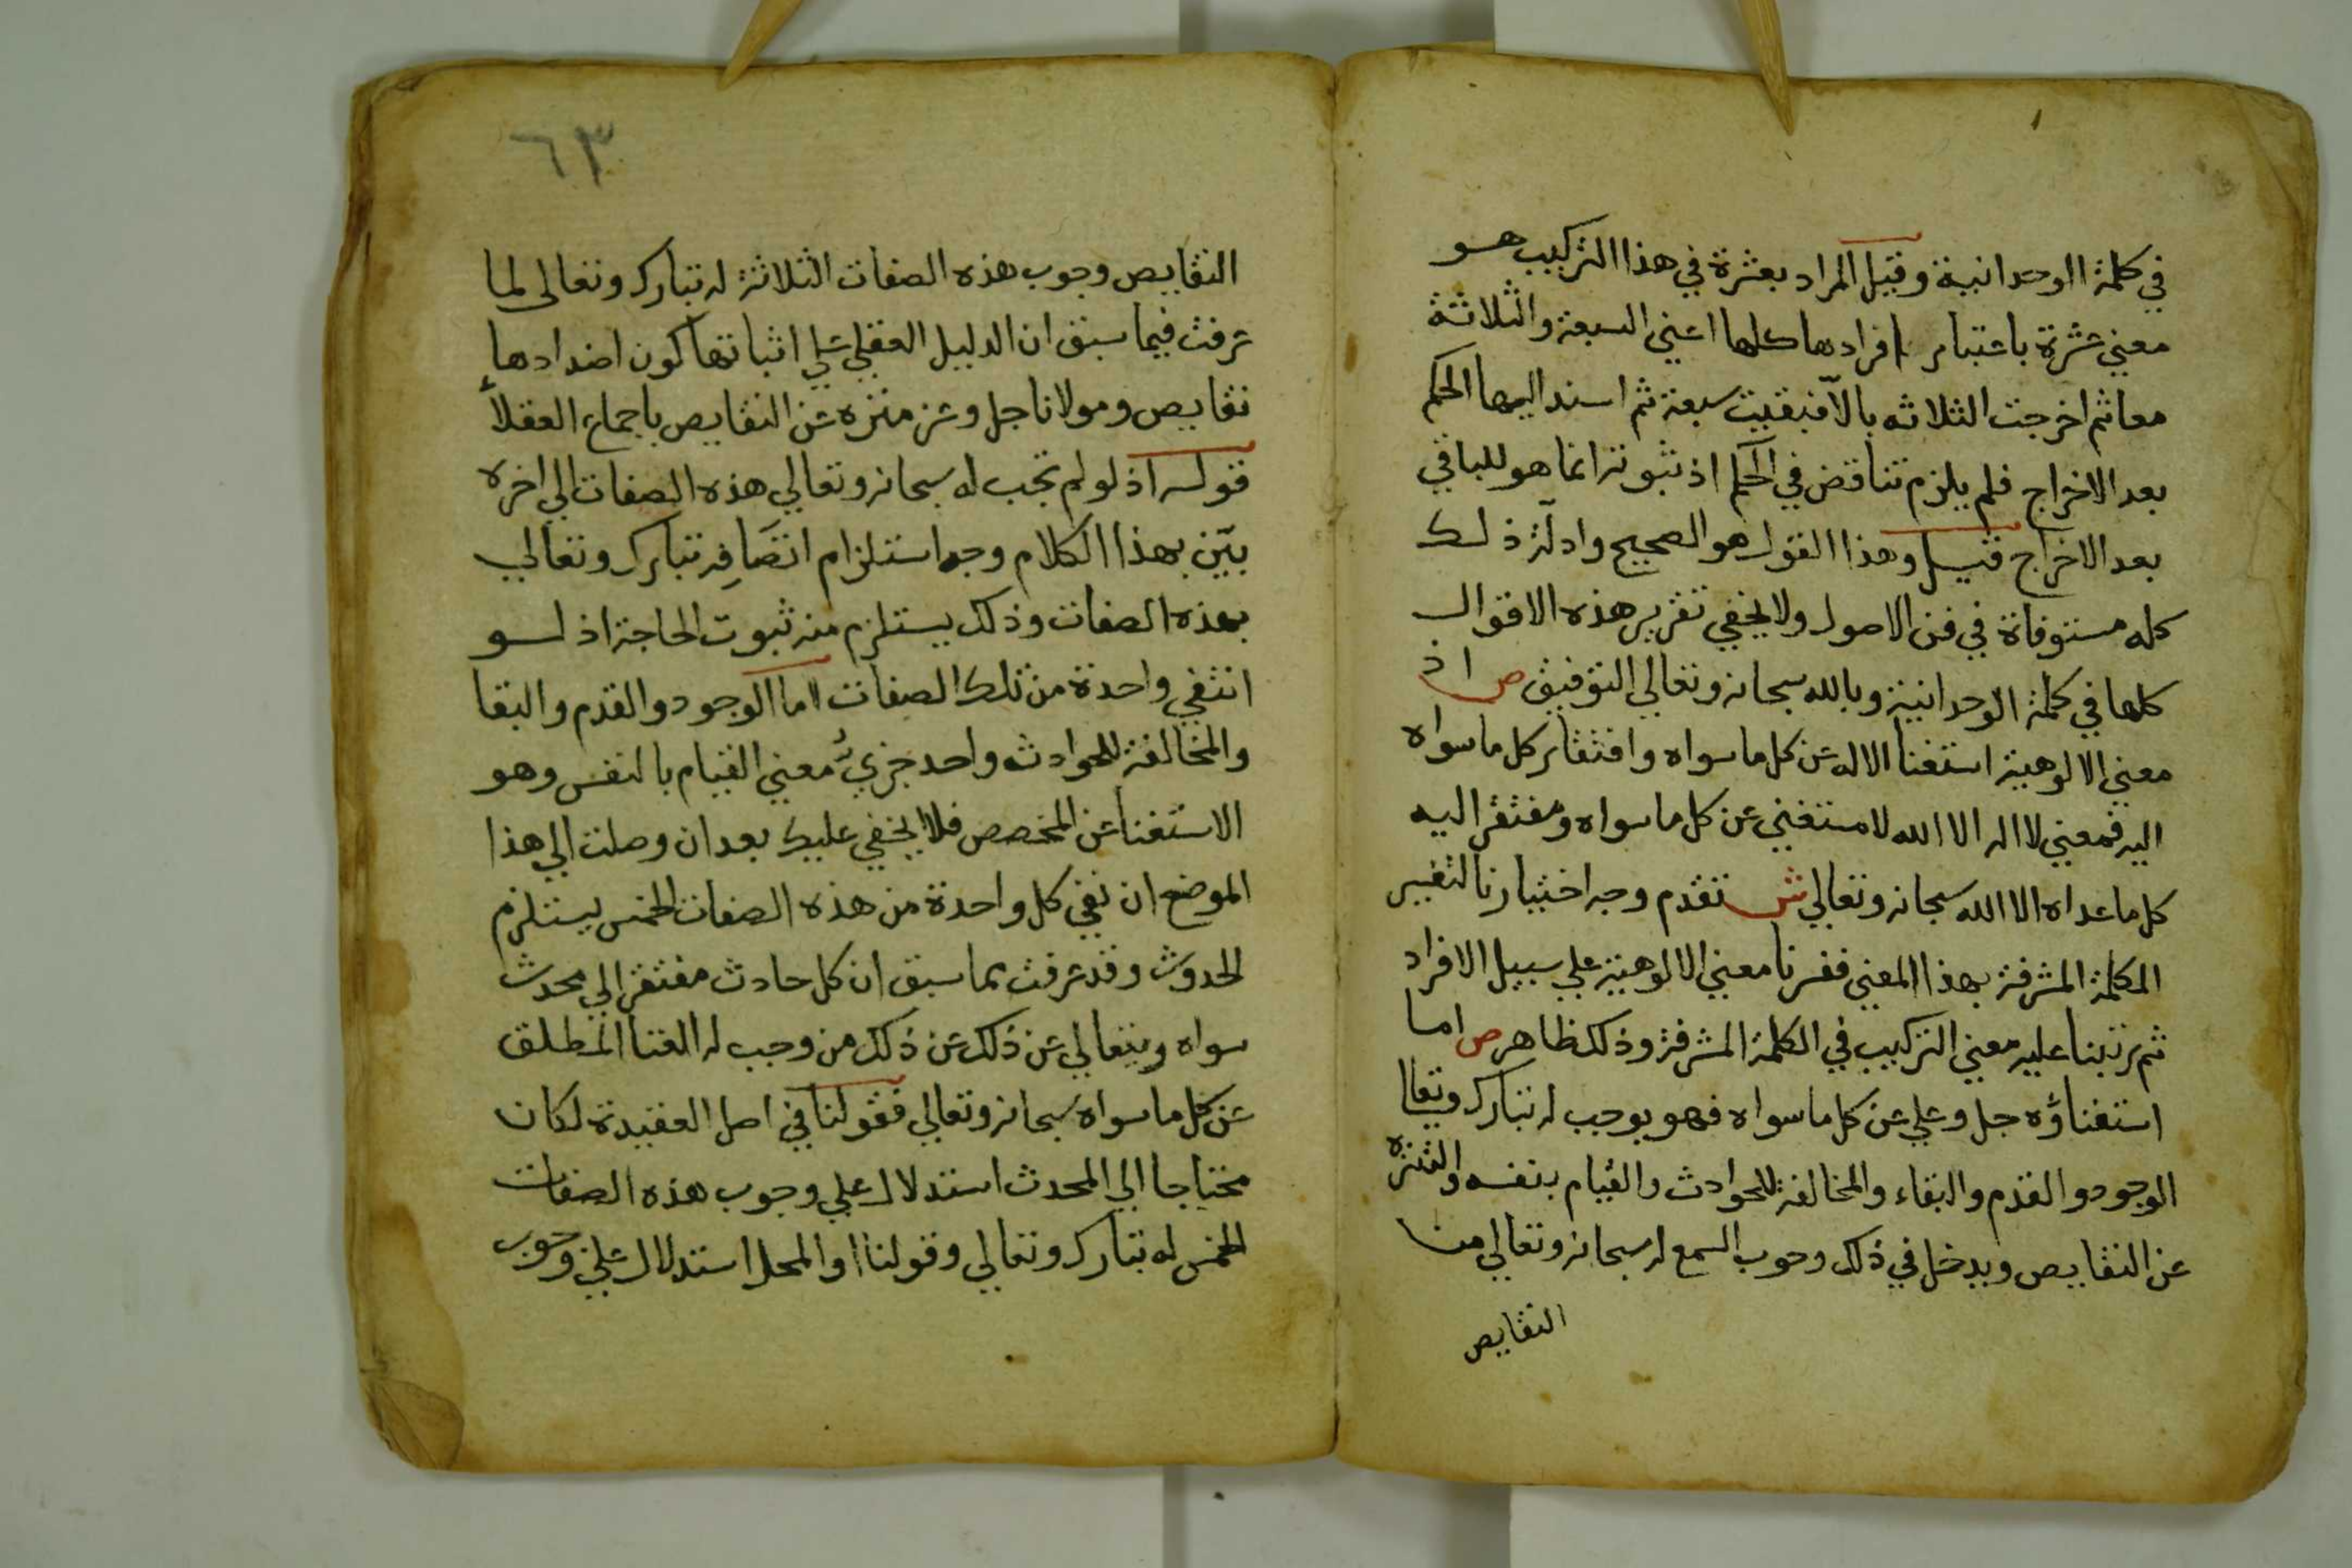 في كلمة الوحدانية وقيل المراد بعشرة في هذا التركيب هو
معني عشرة باعتبار افرادها كلها اعني السبعة والثلاثة
معا ثم اخرجت الثلاثه بالا فبقيت سبعة ثم اسند اليها الحكم
بعد الاخراج فلم يلزم تناقض في الحكم اذ ثبوته انما هو للباقي
بعد الاخراج قيل وهذا القول هو الصحيح وادلّة ذلك
كله مستوفاة في فن الاصول ولا يخفي تقرير هذه الاقوال
كلها في كلمة الوحدانية وبالله سبحانه وتعالي التوفيق ص اذ
معني الالوهية استغنا الاله عن كل ما سواه وافتقار كل ما سواه
اليه فمعني لا اله الا الله لا مستغني عن كل ما سواه ومفتقر اليه
كل ما عداه الا الله سبحانه وتعالي ش تقدم وجه اختيارنا لتفسير
الكلمة المشرفة بهذا المعني ففسرنا معني الالوهية علي سبيل الافراد
ثم رتبنا عليه معني التركيب في الكلمة المشرفة وذلك ظاهر ص اما
استغناؤه جل وعلي عن كل ما سواه فهو يوجب له تبارك وتعالي
الوجود والقدم والبقاء والمخالفة للحوادث والقيام بنفسه والتنزه
عن النقايص ويدخل في ذلك وجوب السمع له سبحانه وتعالي من
النقايص
٦٣
النقايص وجوب هذه الصفات الثلاثة له تبارك وتعالى لما
عرفت فيما سبق ان الدليل العقلي علي اثباتها كون اضدادها
نقايص ومولانا جل وعز منزه عن النقايص باجماع العقلاء
قوله اذ لو لم تجب له سبحانه وتعالي هذه الصفات الي اخره
بيّن بهذا الكلام وجه استلزام اتصافه تبارك وتعالي
بهذه الصفات وذلك يستلزم منه ثبوت الحاجة اذ لو
انتفي واحدة من تلك الصفات اما الوجود والقدم والبقا
والمخالفة للحوادث واحد جزيي معني القيام بالنفس وهو
الاستغنا عن المخصص فلا يخفي عليك بعد ان وصلت الي هذا
الموضع ان نفي كل واحدة من هذه الصفات الخمس يستلزم
الحدوث وقد عرفت بما سبق ان كل حادث مفتقر الي محدث
سواه ويتعالي عن ذلك عن ذلك من وجب له الغنا المطلق
عن كل ما سواه سبحانه وتعالي فقولنا في اصل العقيدة لكان
محتاجا الي المحدث استدلال علي وجوب هذه الصفات
الخمس له تبارك وتعالي وقولنا او المحل استدلال علي وجوب